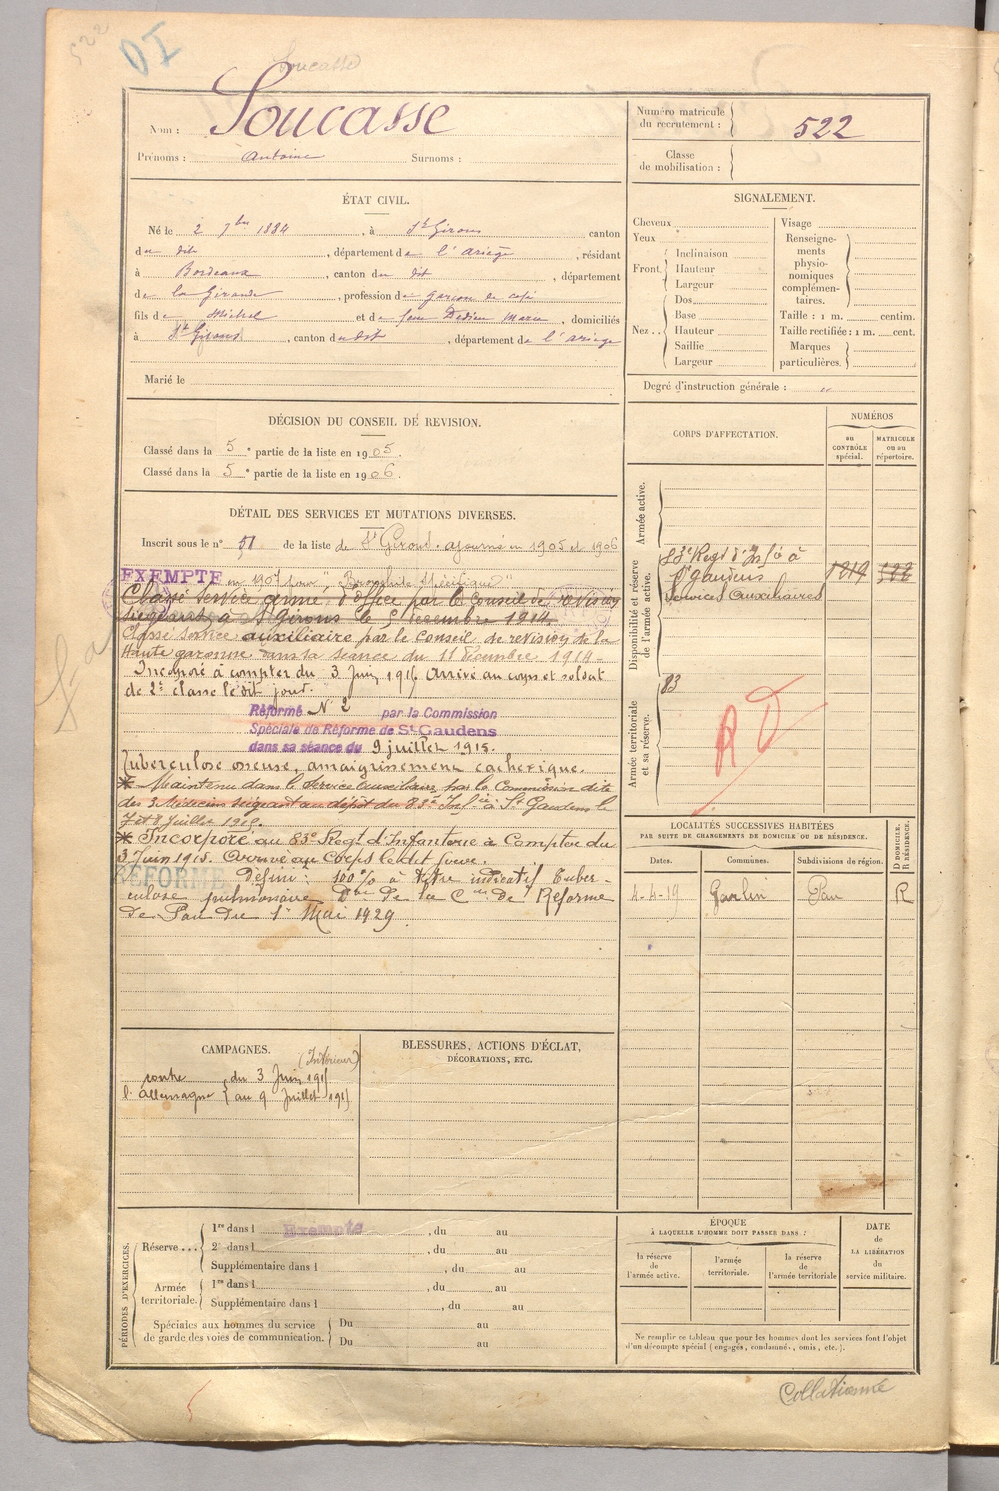 522
DI
Soucasse
Nom : Soucasse
Prénoms : Antoine Surnoms :
Numéro matricule du recrutement : 522
Classe de mobilisation :
ÉTAT CIVIL.
Né le 2 7bre 1884, à St Girons canton
du dit, département de l'ariège, résidant
à Bordeaux, canton du dit, département
de la Gironde, profession de garçon de café
fils de Michel et de feue Dedieu Marie, domiciliés
à St Girons, canton du dit, département de l'ariège
Marié le
SIGNALEMENT.
Cheveux
Yeux
Front. Inclinaison
Hauteur
Largeur
Nez .. Dos
Base
Hauteur
Saillie
Largeur
Visage
Renseignements physionomiques complémentaires.
Taille : 1 m. centim.
Taille rectifiée : 1 m. cent.
Marques particulières.
Degré d'instruction générale : "
DÉCISION DU CONSEIL DE REVISION.
Classé dans la 5e partie de la liste en 1905.
Classé dans la 5e partie de la liste en 1906.
DÉTAIL DES SERVICES ET MUTATIONS DIVERSES.
Inscrit sous le n° 51 de la liste de St Girons. ajourné en 1905 et 1906
EXEMPTÉ en 1907 pour
Classé Service armé d'office par le Conseil de revision
siégeant à St Girons le 5 décembre 1914.
Classé service auxiliaire par le Conseil de revision de la
Haute garonne dans la séance du 11 Décembre 1914 -
Incorporé à compter du 3 Juin 1915. Arrivé au corps et soldat
de 2e classe le dit jour.
Réformé N° 2 par la Commission
Spéciale de Réforme de St Gaudens
dans sa séance du 9 juillet 1915.
Tuberculose osseuse, amaigrissement cachexique.
* Maintenu dans le service auxiliaire par le Commission dite
des 3 Médecins siégeant au dépôt du 83e Inf. ie à St Gaudens le
7 et 8 Juillet 1915.
* Incorporé au 83e Regt d'Infanterie à Compter du
3 Juin 1915. Arrivé au Corps le dit jour.
RÉFORMÉ Défini : 100 % à titre indicatif Tuber-
culose pulmonaire Don de la Con de Réforme
de Pau du 1er Mai 1929
CORPS D'AFFECTATION.
NUMÉROS
au CONTRÔLE spécial.
MATRICULE ou au répertoire.
Armée active.
Disponibilité et réserve de l'armée active.
83e Regt d'Inf ie à
St gaudens
Services Auxiliaires
1819 522
Armée territoriale et sa réserve.
83
RD
LOCALITÉS SUCCESSIVES HABITÉES
PAR SUITE DE CHANGEMENTS DE DOMICILE OU DE RÉSIDENCE.
Dates. Communes. Subdivisions de région. D DOMICILE. R RÉSIDENCE.
4-4-19 Garlin Pau R
CAMPAGNES.
(Intérieur)
contre du 3 Juin 1915
l'allemagne au 9 Juillet 1915
BLESSURES, ACTIONS D'ÉCLAT,
DÉCORATIONS, ETC.
PÉRIODES D'EXERCICES.
Réserve ... 1re dans l Exempté, du au
2e dans l , du au
Supplémentaire dans l , du au
Armée territoriale. 1re dans l , du au
Supplémentaire dans l , du au
Spéciales aux hommes du service de garde des voies de communication. Du au
Du au
ÉPOQUE
À LAQUELLE L'HOMME DOIT PASSER DANS :
la réserve de l'armée active.
l'armée territoriale.
la réserve de l'armée territoriale
DATE de LA LIBÉRATION du service militaire.
Ne remplir ce tableau que pour les hommes dont les services font l'objet
d'un décompte spécial (engagés, condamnés, omis, etc.).
Collationné